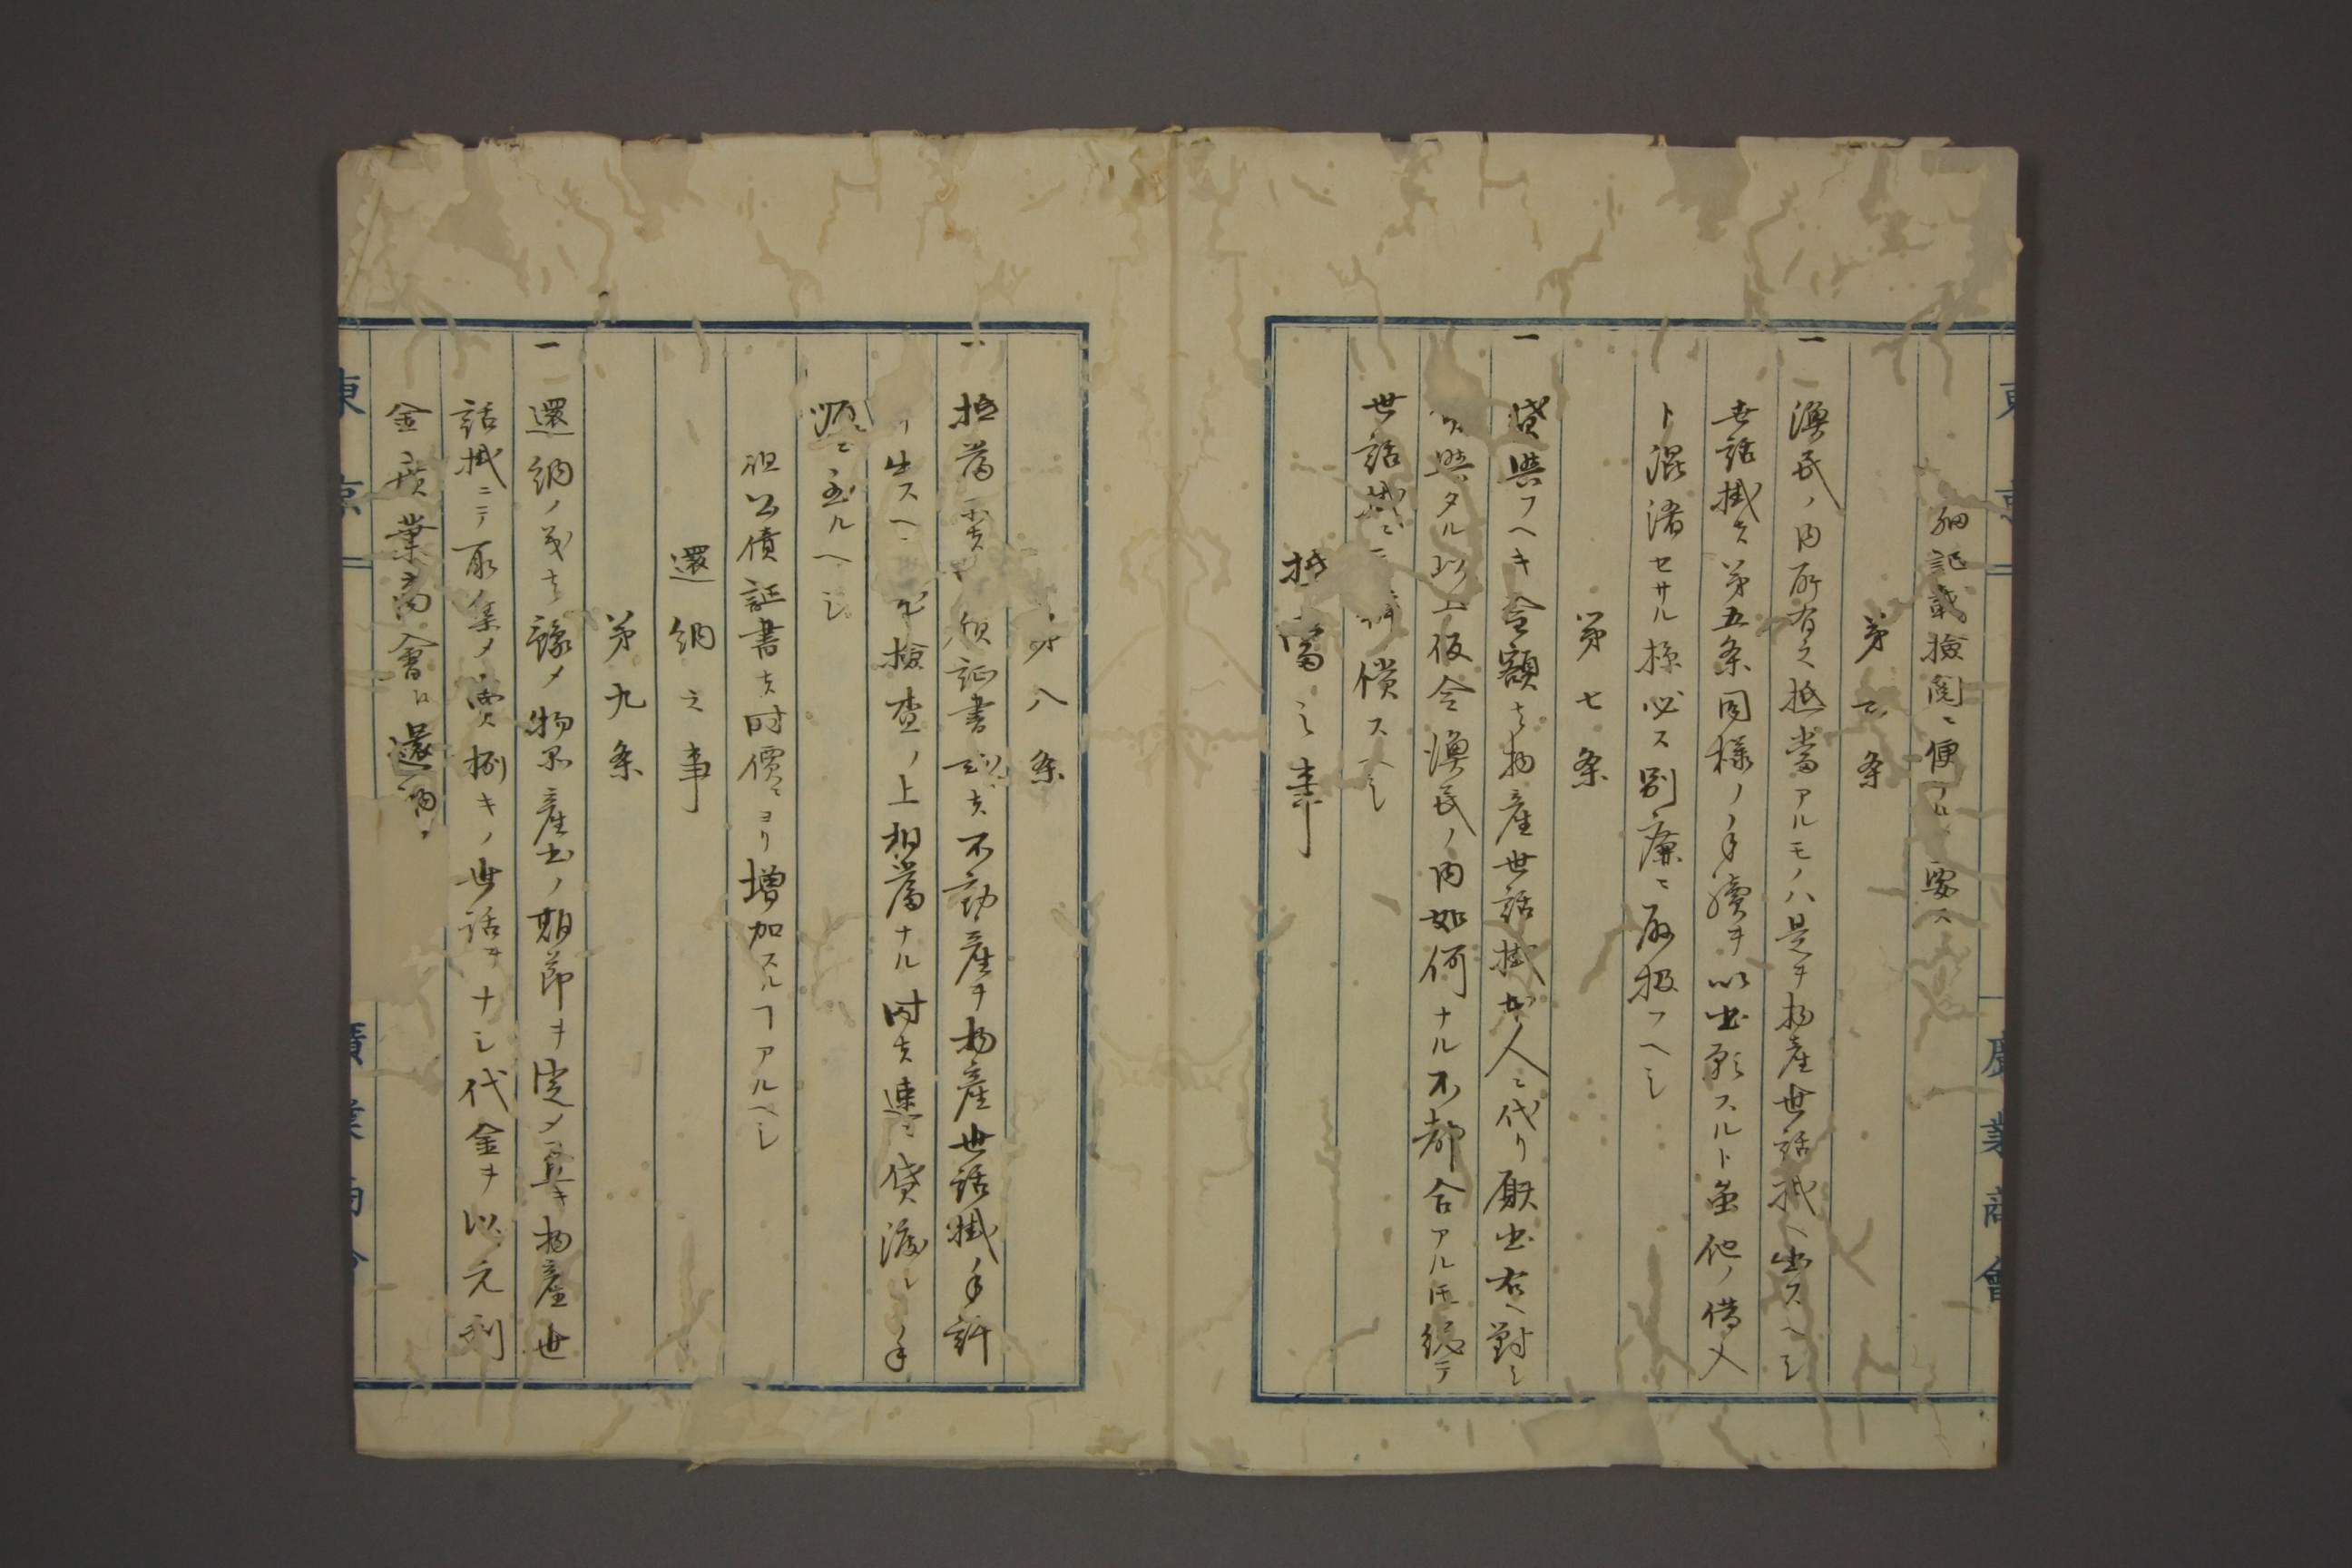 東京
廣業商會
細記載檢閲ニ便ナルヲ要ス
第六条
一漁民ノ内所有之抵當アルモノハ是ヲ物産世話掛ヘ出スヘシ
世話掛ハ第五条同様ノ手續ヲ以出願スルト虽他ノ借入
ト混淆セサル様必ス別廉ニ取扱フヘシ
第七条
一貸與フヘキ金額ハ物産世話掛本人ニ代リ願出右ヘ對シ
與タル以上仮令漁民ノ内如何ナル不都合アルトモ総テ
世話掛ニテ償スヘシ
抵當之事
第八条
一抵當公債証書或ハ不動産ヲ物産世話掛ノ手許
ヘ出スヘシ檢査ノ上相當ナル時ハ速ニ貸渡シノ手
順ニ至ルヘシ
但公債証書ハ時價ニヨリ増加スルヿアルヘシ
還納之事
第九条
一還納ノ義ハ豫メ物品産出ノ期節ヲ定メ置キ物産世
話掛ニテ取集メ賣捌キノ世話ヲナシ代金ヲ以元利
金廣業商會ニ還納
東京
廣業商會